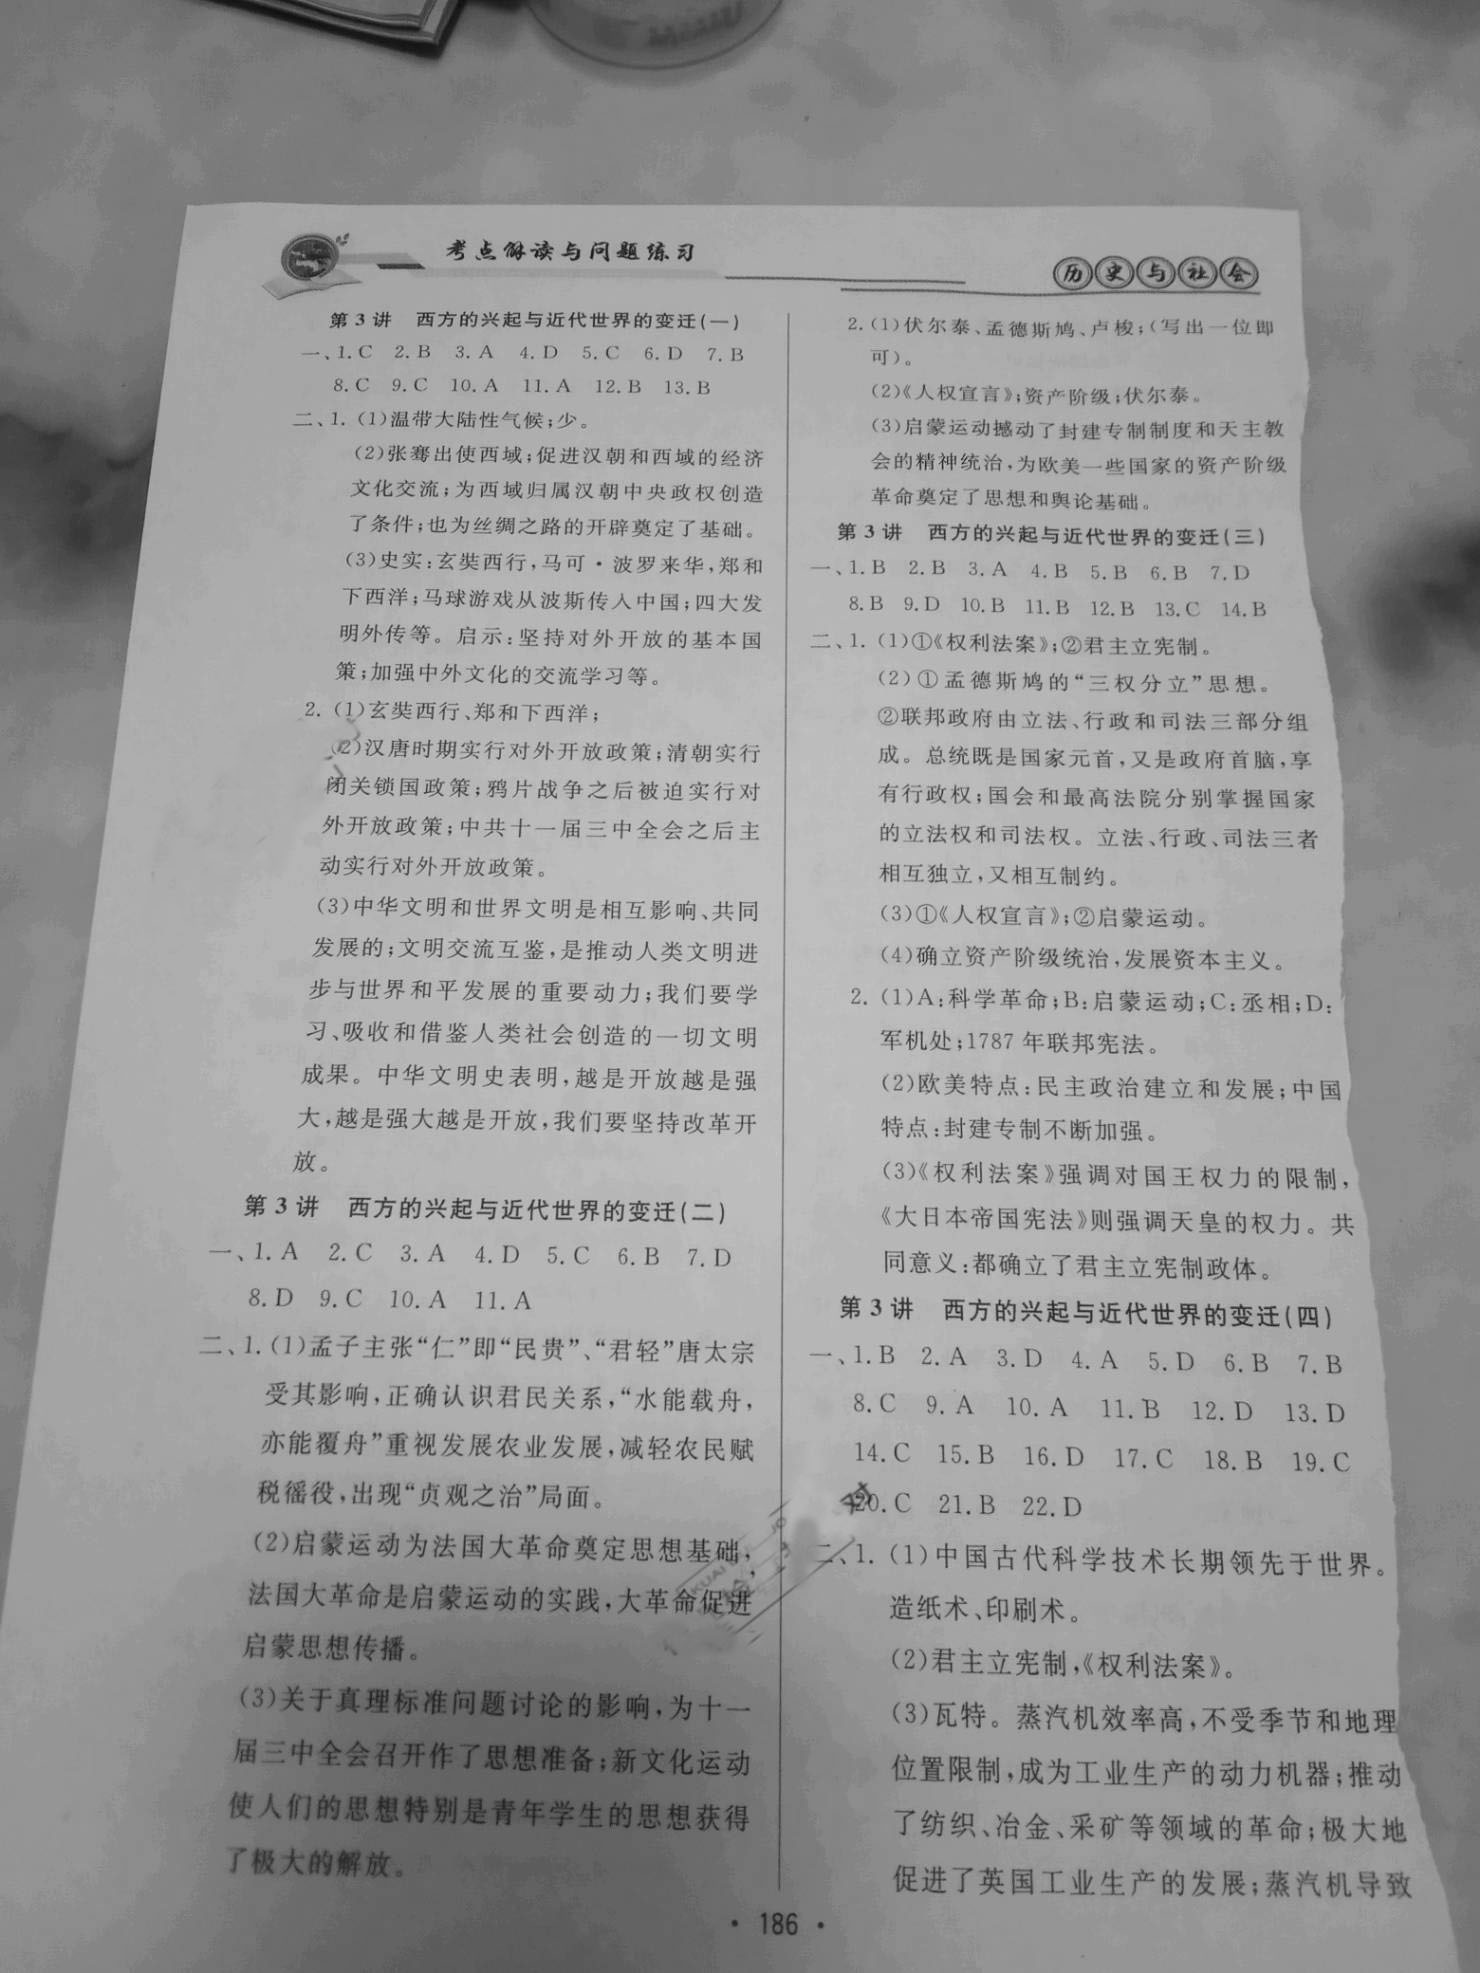 考点解读与问题练习
历史与社会
第3讲 西方的兴起与近代世界的变迁(一)
一、1.C 2.B 3.A 4.D 5.C 6.D 7.B
8.C 9.C 10.A 11.A 12.B 13.B
二、1.(1)温带大陆性气候;少。
(2)张骞出使西域;促进汉朝和西域的经济
文化交流;为西域归属汉朝中央政权创造
了条件;也为丝绸之路的开辟奠定了基础。
(3)史实:玄奘西行,马可·波罗来华,郑和
下西洋;马球游戏从波斯传人中国;四大发
明外传等。启示:坚持对外开放的基本国
策;加强中外文化的交流学习等。
2.(1)玄奘西行、郑和下西洋;
(2)汉唐时期实行对外开放政策;清朝实行
闭关锁国政策;鸦片战争之后被迫实行对
外开放政策;中共十一届三中全会之后主
动实行对外开放政策。
(3)中华文明和世界文明是相互影响、共同
发展的;文明交流互鉴,是推动人类文明进
步与世界和平发展的重要动力;我们要学
习、吸收和借鉴人类社会创造的一切文明
成果。中华文明史表明,越是开放越是强
大,越是强大越是开放,我们要坚持改革开
放。
第3讲 西方的兴起与近代世界的变迁(二)
一、1.A 2.C 3.A 4.D 5.C 6.B 7.D
8.D 9.C 10.A 11.A
二、1.(1)孟子主张“仁”即“民贵”、“君轻”唐太宗
受其影响,正确认识君民关系,“水能载舟,
亦能覆舟”重视发展农业发展,减轻农民赋
税徭役,出现“贞观之治”局面。
(2)启蒙运动为法国大革命奠定思想基础,
法国大革命是启蒙运动的实践,大革命促进
启蒙思想传播。
(3)关于真理标准问题讨论的影响,为十一
届三中全会召开作了思想准备;新文化运动
使人们的思想特别是青年学生的思想获得
了极大的解放。
2.(1)伏尔泰、孟德斯鸠、卢梭;(写出一位即
可)。
(2)《人权宣言》;资产阶级;伏尔泰。
(3)启蒙运动撼动了封建专制制度和天主教
会的精神统治,为欧美一些国家的资产阶级
革命奠定了思想和舆论基础。
第3讲 西方的兴起与近代世界的变迁(三)
一、1.B 2.B 3.A 4.B 5.B 6.B 7.D
8.B 9.D 10.B 11.B 12.B 13.C 14.B
二、1.(1)①《权利法案》;②君主立宪制。
(2)①孟德斯鸠的“三权分立”思想。
②联邦政府由立法、行政和司法三部分组
成。总统既是国家元首,又是政府首脑,享
有行政权;国会和最高法院分别掌握国家
的立法权和司法权。立法、行政、司法三者
相互独立,又相互制约。
(3)①《人权宣言》;②启蒙运动。
(4)确立资产阶级统治,发展资本主义。
2.(1)A:科学革命;B:启蒙运动;C:丞相;D:
军机处;1787年联邦宪法。
(2)欧美特点:民主政治建立和发展;中国
特点:封建专制不断加强。
(3)《权利法案》强调对国王权力的限制,
《大日本帝国宪法》则强调天皇的权力。共
同意义:都确立了君主立宪制政体。
第3讲 西方的兴起与近代世界的变迁(四)
一、1.B 2.A 3.D 4.A 5.D 6.B 7.B
8.C 9.A 10.A 11.B 12.D 13.D
14.C 15.B 16.D 17.C 18.B 19.C
20.C 21.B 22.D
二、1.(1)中国古代科学技术长期领先于世界。
造纸术、印刷术。
(2)君主立宪制,《权利法案》。
(3)瓦特。蒸汽机效率高,不受季节和地理
位置限制,成为工业生产的动力机器;推动
了纺织、冶金、采矿等领域的革命;极大地
促进了英国工业生产的发展;蒸汽机导致
·186·